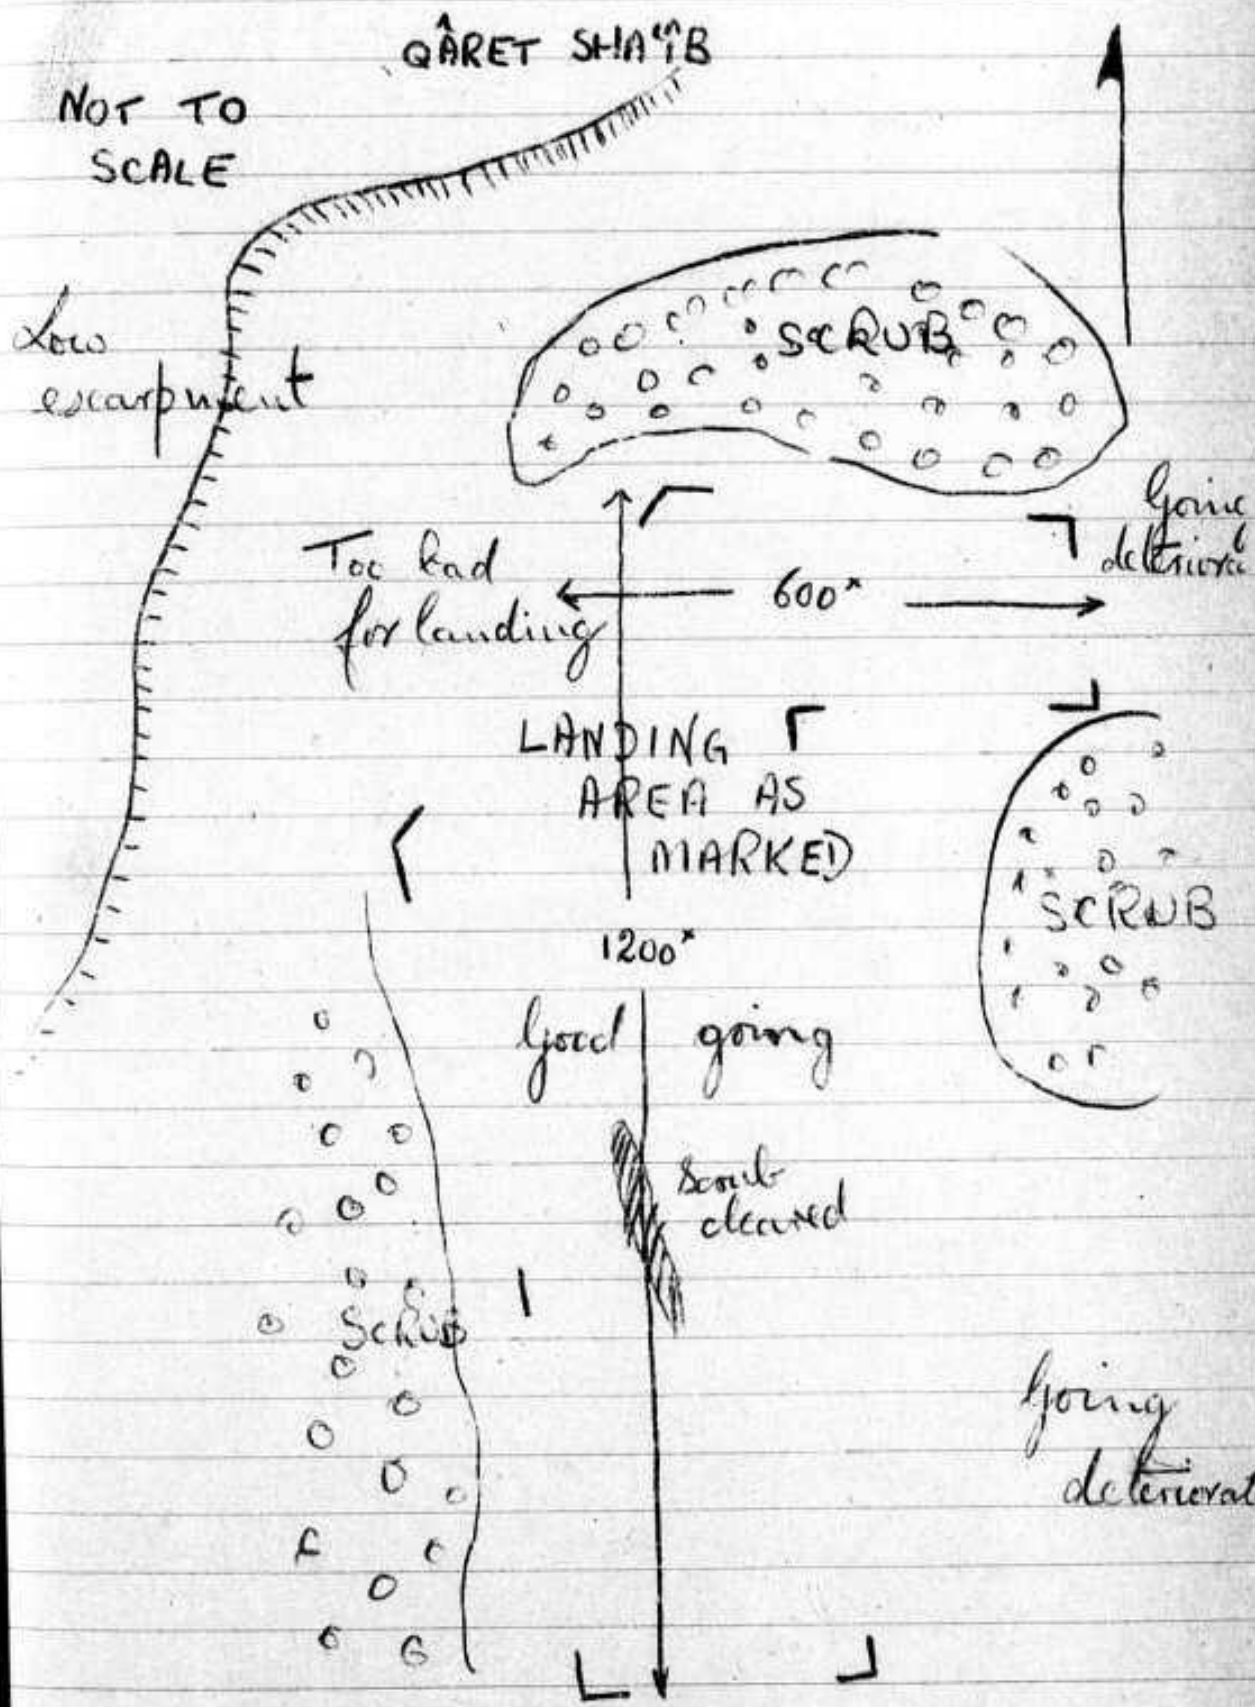 QÂRET SHAʿÎB
NOT TO
SCALE
Low
escarpment
SCRUB
Too bad
for landing
600ˣ
Going
deteriora
LANDING
AREA AS
MARKED
SCRUB
1200ˣ
Good going
Scrub
cleared
SCRUB
Going
deteriorat